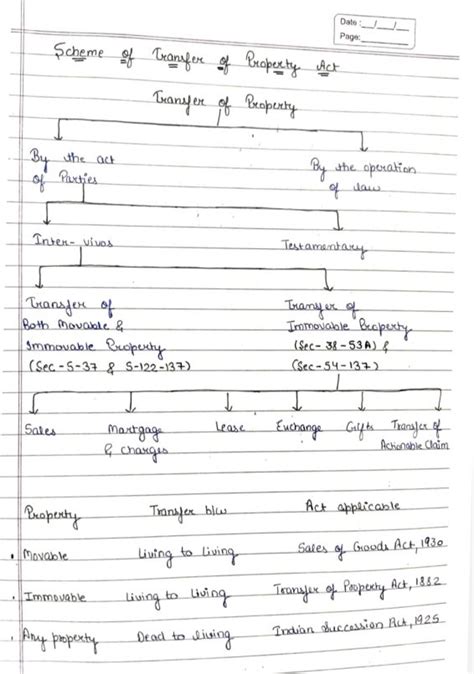 Date :__/__/__
Page:________
Scheme of Transfer of Property Act
Transfer of Property
By the act of Parties
By the operation of law
Inter-vivos
Testamentary
Transfer of
Both Movable &
Immovable Property
(Sec-5-37 & S-122-137)
Transfer of
Immovable Property
(Sec-38-53A) &
(Sec-54-137)
Sales
Mortgage
& charges
Lease
Exchange
Gifts
Transfer of
Actionable Claim
Property Transfer b/w Act applicable
• Movable Living to Living Sales of Goods Act, 1930
• Immovable Living to Living Transfer of Property Act, 1882
• Any property Dead to living Indian Succession Act, 1925